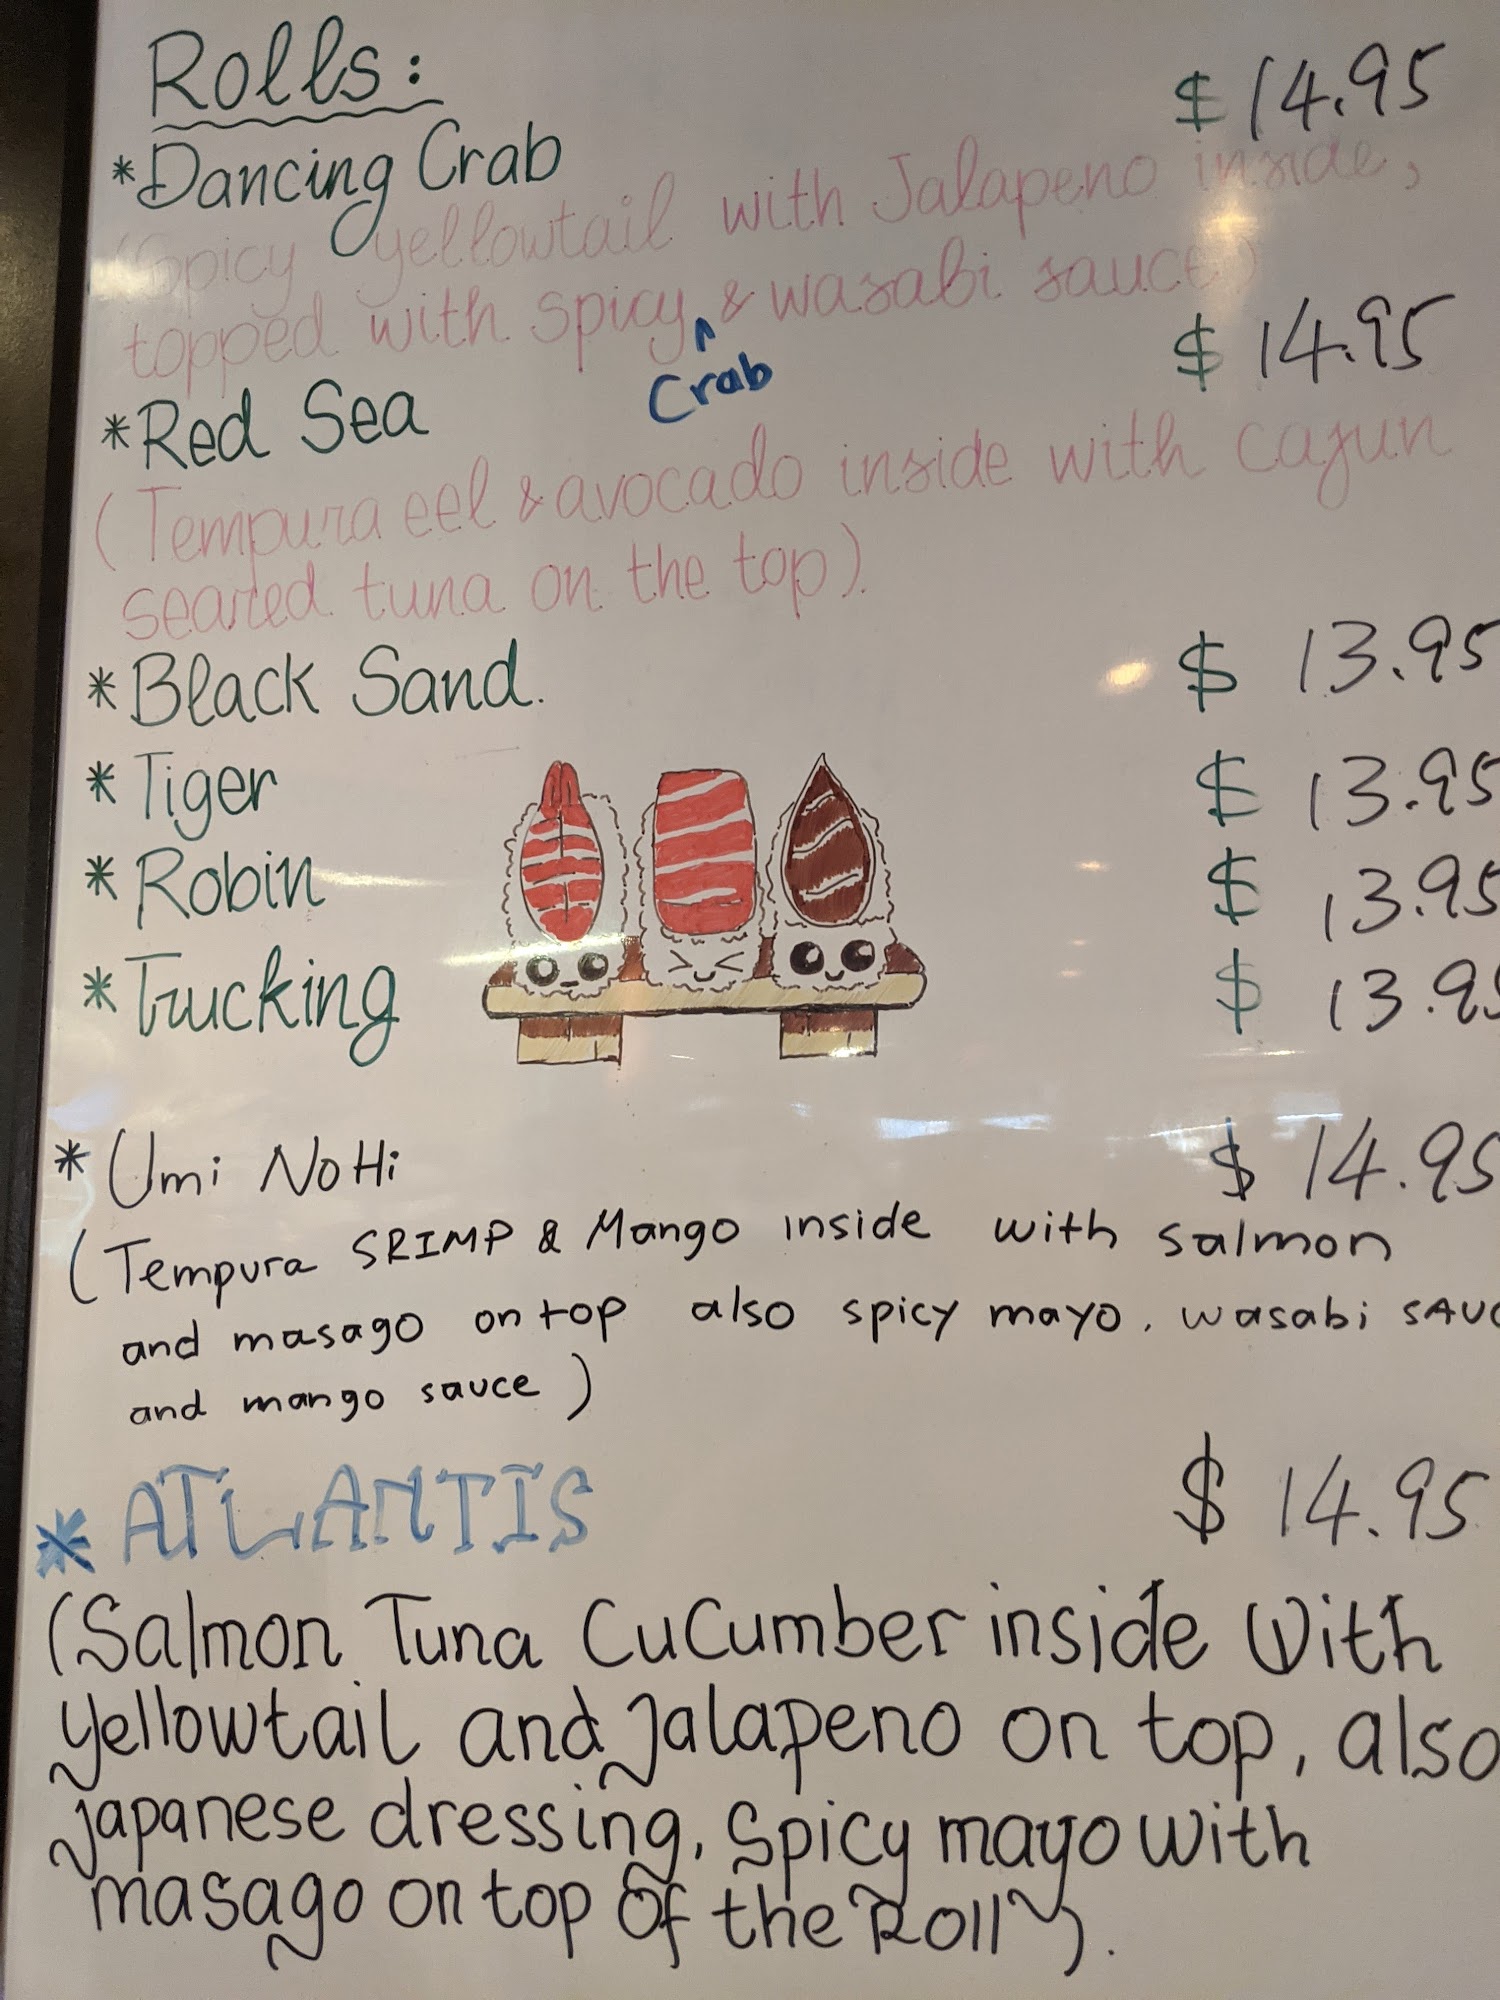 Rolls:
*Dancing Crab $14.95
(Spicy yellowtail with Jalapeno inside,
topped with spicy ^ & wasabi sauce)
Crab
*Red Sea $14.95
(Tempura eel & avocado inside with cajun
seared tuna on the top)
*Black Sand. $13.95
*Tiger $13.95
*Robin $13.95
*Trucking $13.95
*Umi NoHi $14.95
(Tempura SRIMP & Mango inside with salmon
and masago on top also spicy mayo. wasabi SAUC
and mango sauce)
*ATLANTIS $14.95
(Salmon Tuna CuCumber inside With
yellowtail and Jalapeno on top, also
japanese dressing, Spicy mayo with
masago on top of the Roll).